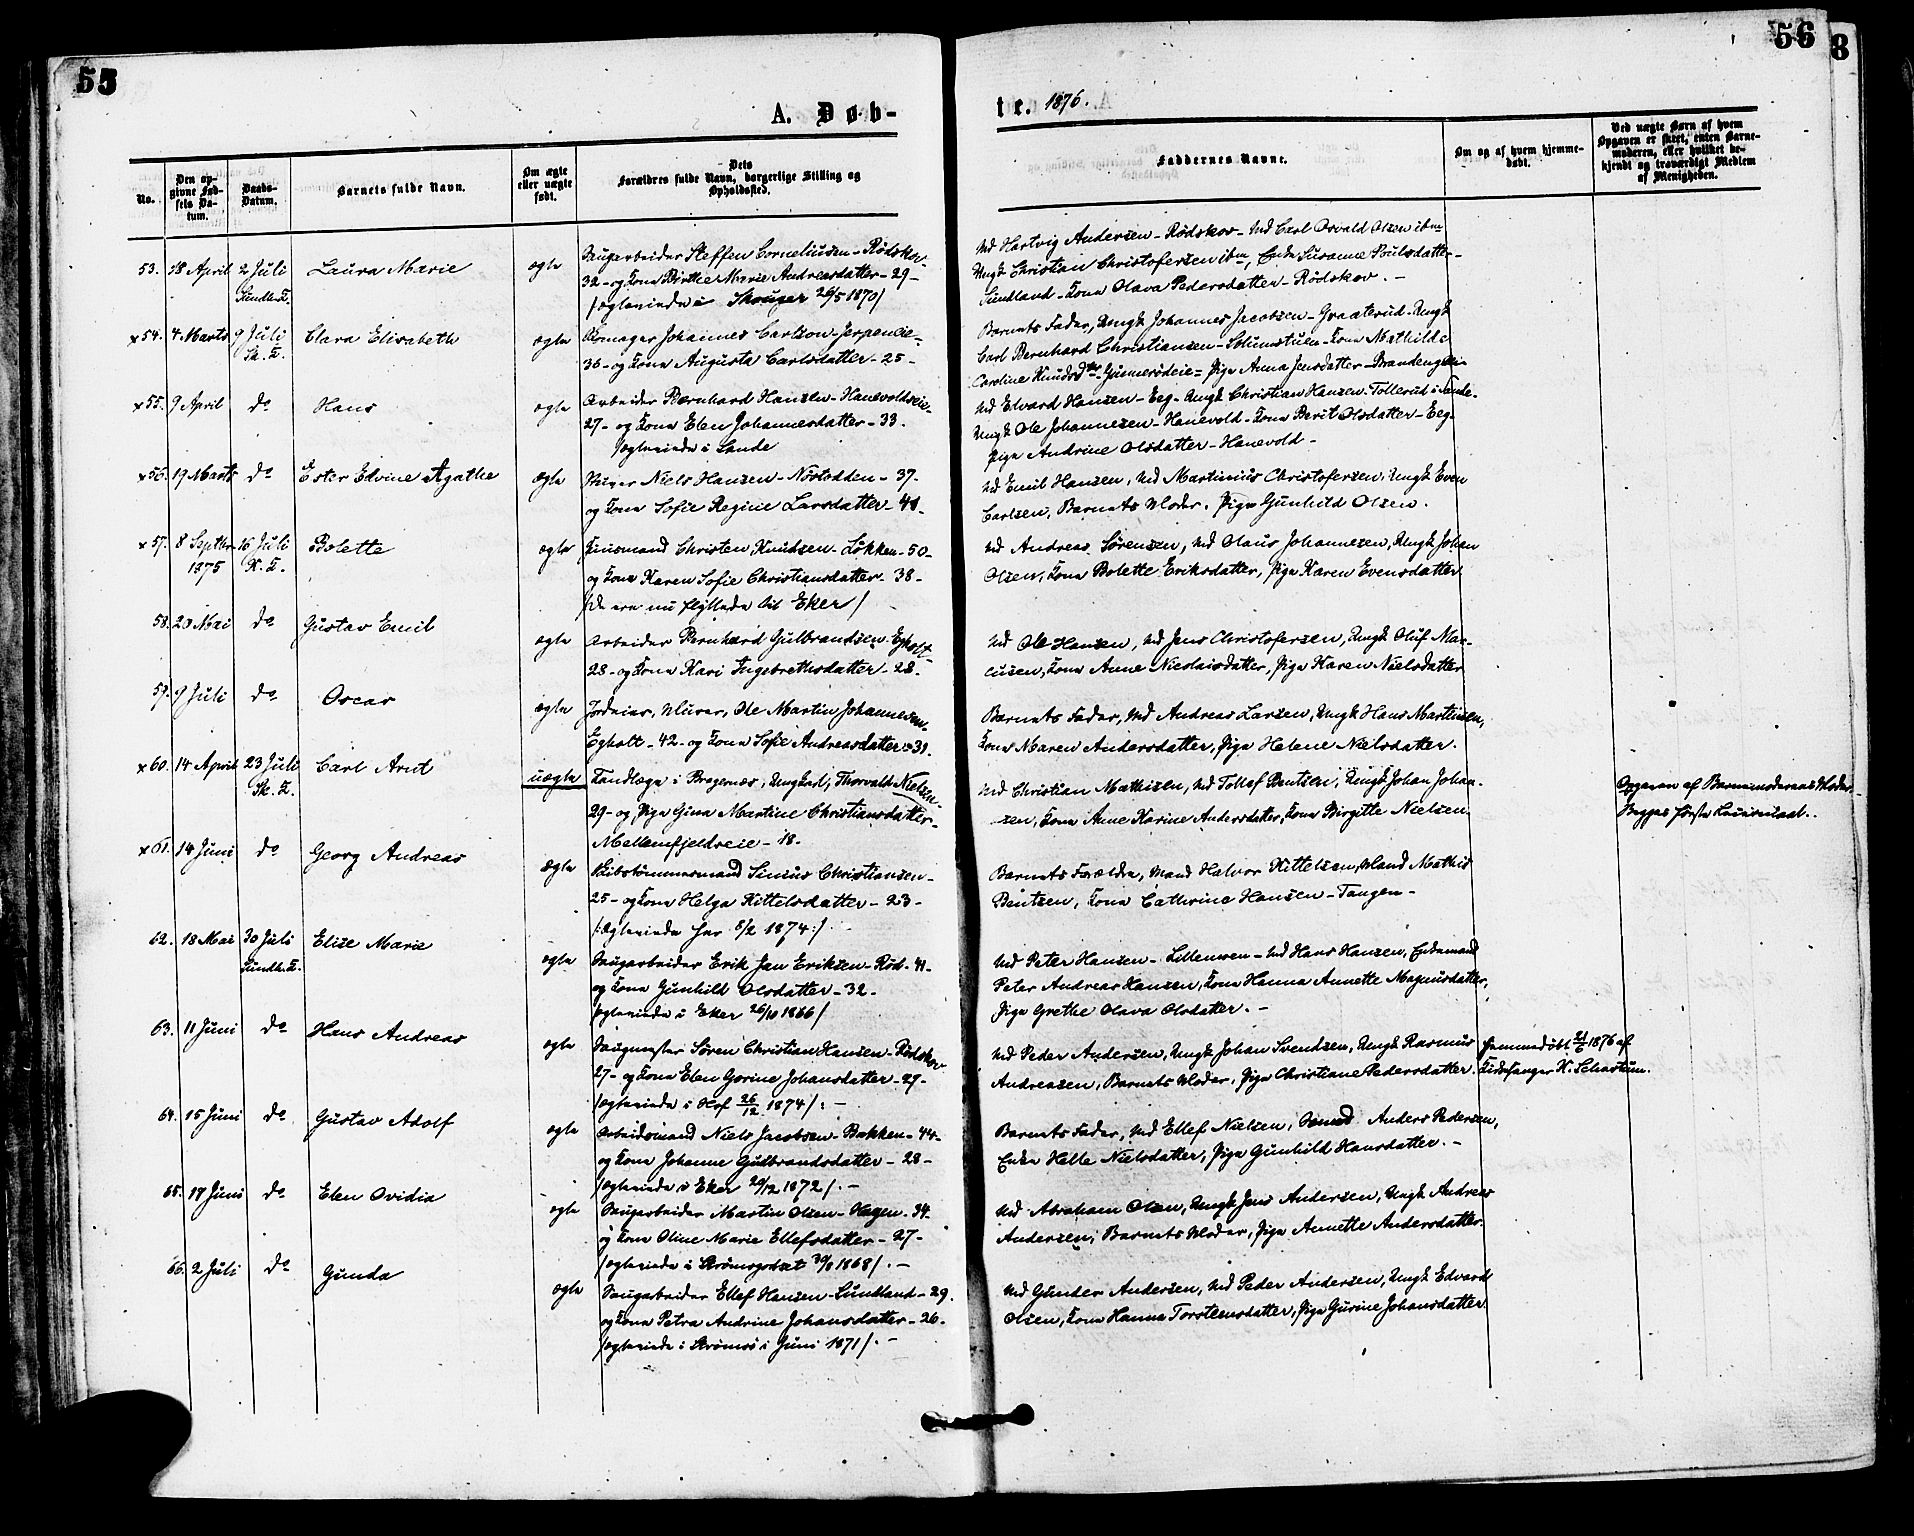 55
56
8
A. Døb-
te. 1876.
No.
Den op-
givne Fød-
sels Da-
tum.
Daabs-
Datum.
Barnets fulde Navn.
Om ægte
eller uægte
født.
Dets
Forældres fulde Navn, borgerlige Stilling og
Opholdssted.
Faddernes Navne.
Om og af hvem hjemme-
døbt.
Ved uægte Børn af hvem
Opgaven er skeet, enten Barne-
moderen, eller hvilket be-
kjendt og troværdigt Medlem
af Menigheden.
53. 18 April 2 Juli Laura Marie ægte Saugarbeider Steffen Corneliusen - Rødskov
Sundh. T. 32 - og Kone Birthe Marie Andreasdatter - 29 -
/ægteviede i Skouger 26/5 1870/
Ud Hartvig Andersen - Rødskov - Ud Carl Osvald Olsen ibm
Ungk Christian Christofersen ibm, Enke Susanne Poulsdatter -
Sundland - Kone Olava Pedersdatter - Rødskov. -
x54. 4 Marts 9 Juli Clara Elisabeth ægte Skomager Johannes Carlson - Jerpeneie -
Sk. T. 36 - og Kone Augusta Carlsdatter - 25 -
Barnets Fader, Ungk Johannes Jacobsen - Graaterud - Ungk
Carl Bernhard Christiansen - Solumstuen - Kone Mathilde
Caroline Knudsdtr - Gusnersdeie - Pige Anna Jensdatter - Brandengen -
x55. 9 April do Hans ægte Arbeider Bernhard Hansen - Hanevoldseie -
27 - og Kone Elen Johannesdatter - 33.
/ægteviede i Sande
Ud Edvard Hansen - Eeg - Ungk Christian Hansen - Tollerud i Sande -
Ungk Ole Johannesen - Hanevold - Kone Berit Olsdatter - Eeg -
Pige Andrine Olsdatter - Hanevold -
x56. 19 Marts do Ester Edvine Agathe ægte Murer Niels Hansen - Nøstodden - 37.
og Kone Sofie Regine Larsdatter - 41 -
Ud Emil Hansen, Ud Martinius Christofersen, Ungk Even
Carlsen, Barnets Moder, Pige Gunhild Olsen.
x57. 8 Septbr 16 Juli Bolette ægte Huusmand Christen Knudsen - Løkken - 50 -
1875 K. T. og Kone Karen Sofie Christiansdatter - 38 -
/De ere nu flyttede til Eker/
Ud Andreas Sørensen, Ud Olaus Johannesen, Ungk Johan
Olsen, Kone Bolette Eriksdatter, Pige Karen Evensdatter
58. 20 Mai do Gustav Emil ægte Arbeider Bernhard Gulbrandsen - Egholt -
28 - og Kone Kari Ingebrethsdatter - 28 -
Ud Ole Hansen, Ud Jens Christofersen, Ungk Oluf Mar-
cusen, Kone Anne Nicolaisdatter, Pige Karen Nielsdatter
59. 9 Juli do Oscar ægte Jordeier, Murer, Ole Martin Johannesen -
Egholt - 42 - og Kone Sofie Andreasdatter - 39.
Barnets Fader, Ud Andreas Larsen, Ungk Hans Martinsen,
Kone Maren Andersdatter, Pige Helene Nielsdatter.
x60. 14 April 23 Juli Carl Arnt uægte Tandlæge i Bragernæs, Ungkarl, Thorvald Nielsen -
Sk. T. 29 - og Pige Gina Martine Christiansdatter -
Mellemfjeldseie - 18.
Ud Christian Mathisen, Ud Tollef Bentsen, Ungk Johan Johan-
sen, Kone Anne Karine Andersdatter, Kone Birgitte Nielsen
Opgaven af Barnemoderens Moder.
Begges første Leiermaal.
x61. 14 Juni do Georg Andreas Ægte Skibstømmermand Sinius Christiansen -
25 - og Kone Helga Kittelsdatter - 23 -
/:Ægteviede her 8/2 1874:/
Barnets Forældre, Mand Halvor Kittelsen, Mand Mathis
Bentzen, Kone Cathrine Hansen - Tangen -
62. 18 Mai 30 Juli Elise Marie ægte Saugarbeider Erik Jan Eriksen - Rød - 41 -
Sundh. T. og Kone Gunhild Olsdatter - 32 -
/ægteviede i Eker 26/10 1866/
Ud Peter Hansen - Lillemoen - Ud Hans Hansen, Enkemand
Peter Andreas Hansen, Kone Hanna Annette Magnusdatter,
Pige Grethe Olava Olsdatter. -
63. 11 Juni do Hans Andreas ægte Saugmester Søren Christian Hansen - Rødskov
27 - og Kone Elen Gorine Johansdatter - 27 -
/ægteviede i Hof 26/12 1874/: -
Ud Peder Andersen, Ungk Johan Svendsen, Ungk Rasmus
Andreasen, Barnets Moder, Pige Christiane Pedersdatter.
Hjemmedøbt 21/6 1876 af
Kirkesanger K. Schartum.
64. 15 Juni do Gustav Adolf ægte Arbeidsmand Niels Jacobsen - Bakken - 44 -
og Kone Johanne Gulbrandsdatter - 28 -
/ægteviede i Eker 20/12 1872/. -
Barnets Fader, Ud Ellef Nielsen, Anders Pedersen,
Enke Helle Nielsdatter, Pige Gunhild Hansdatter. -
65. 17 Juni do Elen Ovidia ægte Saugarbeider Martin Olsen - Hagen - 34 -
og Kone Oline Marie Ellefsdatter - 27 -
/ægteviede i Strømsgodset 1868/. -
Ud Abraham Olsen, Ungk Jens Andersen, Ungk Andreas
Andersen, Barnets Moder, Pige Annette Andersdatter.
66. 2 Juli do Gunda ægte Saugarbeider Ellef Hansen - Sundland - 29.
og Kone Petra Andrine Johansdatter - 26 -
/ægteviede i Strømsø i Juni 1871/. -
Ud Gunder Andersen, Ud Peder Andersen, Ungk Edvard
Olsen, Kone Hanna Torstensdatter, Pige Gurine Johansdatter